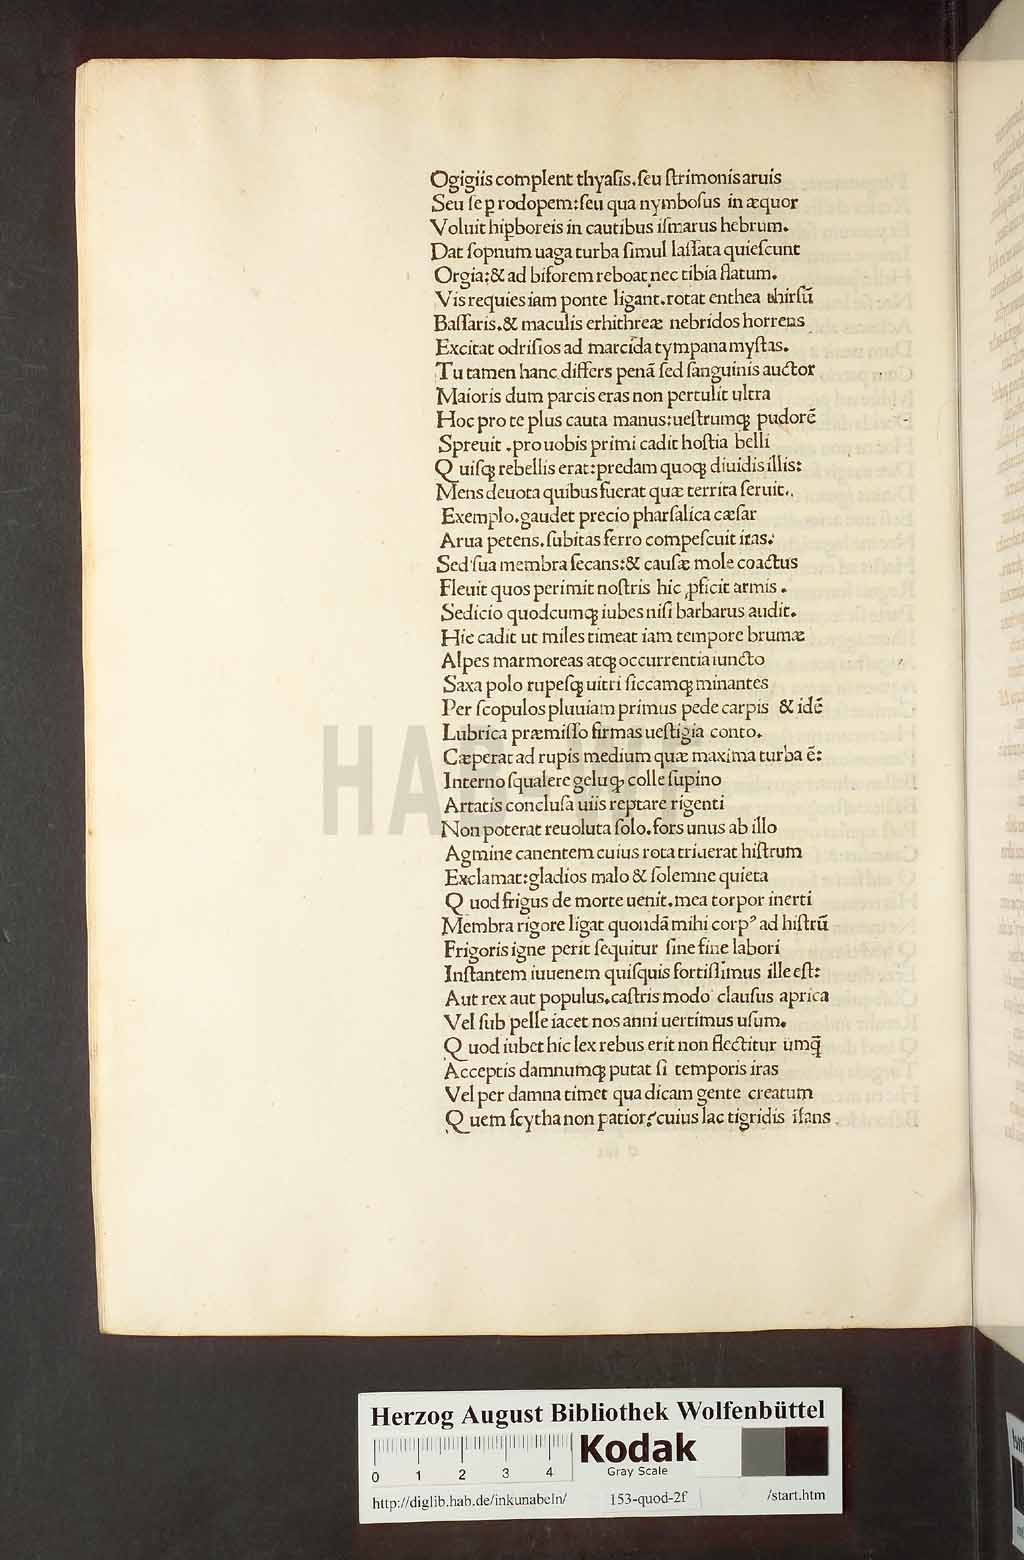 Ogigiis complent thyasis.seu strimonis aruis
Seu se ꝑ rodopem:seu qua nymbosus in æquor
Voluit hiꝑboreis in cautibus ismarus hebrum.
Dat sopnum uaga turba simul lassata quiescunt
Orgia:& ad biforem reboat nec tibia flatum.
Vis requies iam ponte ligant.rotat enthea thirsū
Bassaris.& maculis erhithreæ nebridos horrens
Excitat odrisios ad marcida tympana mystas.
Tu tamen hanc differs penā sed sanguinis auctor
Maioris dum parcis eras non pertulit ultra
Hoc pro te plus cauta manus:uestrumqꝫ pudorē
Spreuit .pro uobis primi cadit hostia belli
Quisqꝫ rebellis erat:predam quoqꝫ diuidis illis:
Mens deuota quibus fuerat quæ territa seruit..
Exemplo.gaudet precio pharsalica cæsar
Arua petens.subitas ferro compescuit iras.
Sed sua membra secans:& causæ mole coactus
Fleuit quos perimit nostris hic ꝓficit armis .
Sedicio quodcumqꝫ iubes nisi barbarus audit.
Hic cadit ut miles timeat iam tempore brumæ
Alpes marmoreas atqꝫ occurrentia iuncto
Saxa polo rupesqꝫ uitri siccamqꝫ minantes
Per scopulos pluuiam primus pede carpis & idē
Lubrica præmisso firmas uestigia conto.
Cæperat ad rupis medium quæ maxima turba ē:
Interno squalere geluqꝫ colle supino
Artatis conclusa uiis reptare rigenti
Non poterat reuoluta solo.fors unus ab illo
Agmine canentem cuius rota triuerat histrum
Exclamat:gladios malo & solemne quieta
Quod frigus de morte uenit.mea torpor inerti
Membra rigore ligat quondā mihi corpꝰ ad histrū
Frigoris igne perit sequitur sine fine labori
Instantem iuuenem quisquis fortissimus ille est:
Aut rex aut populus.castris modo clausus aprica
Vel sub pelle iacet nos anni uertimus usum.
Quod iubet hic lex rebus erit non flectitur umqꝫ̄
Acceptis damnumqꝫ putat si temporis iras
Vel per damna timet qua dicam gente creatum
Quem scytha non patior?cuius lac tigridis isans
HAB-WF
Herzog August Bibliothek Wolfenbüttel
0 1 2 3 4
Kodak
Gray Scale
http://diglib.hab.de/inkunabeln/ 153-quod-2f /start.htm